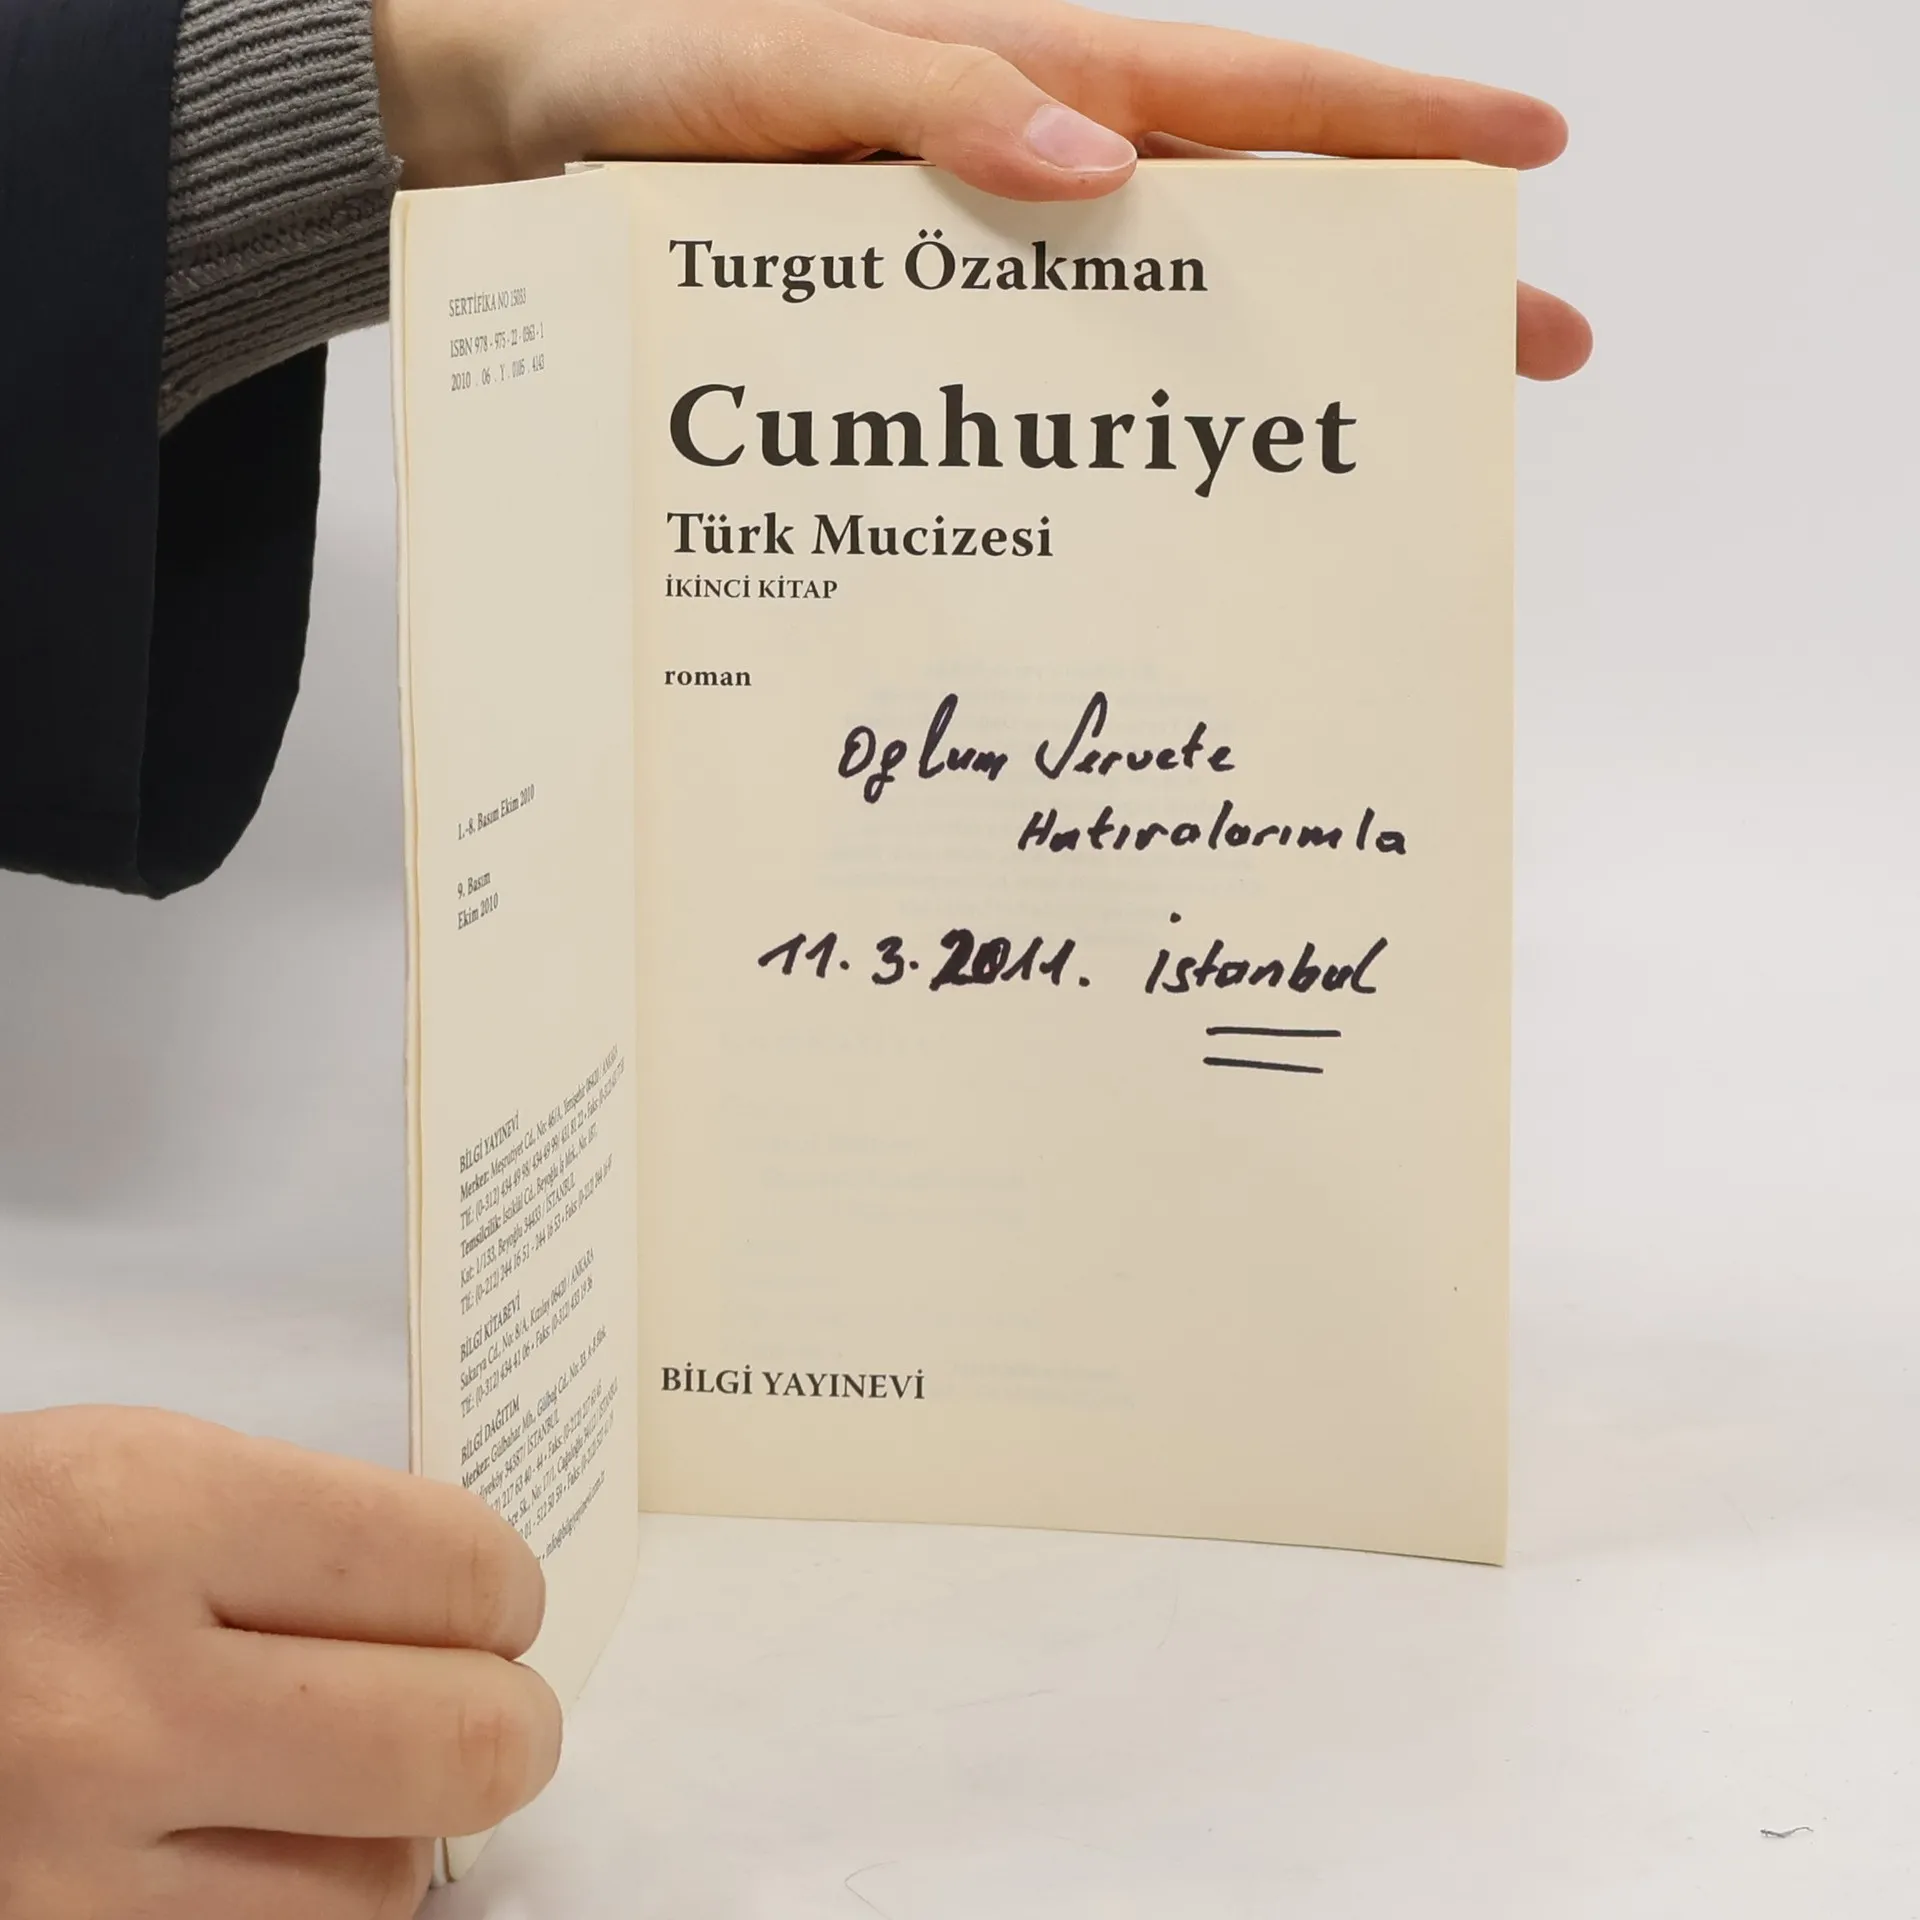 SERTİFİKA NO 15033
ISBN 978 - 975 - 22 - 0363 - 1
2010 . 06 . Y . 0105 . 4143
1.-8. Basım Ekim 2010
9. Basım
Ekim 2010
BİLGİ YAYINEVİ
Merkez: Meşrutiyet Cd., No: 46/A, Yenişehir 06420 / ANKARA
Tlf.: (0-312) 434 49 98/ 434 49 99/ 431 81 22 • Faks: (0-312)
Temsilcilik: İstiklâl Cd., Beyoğlu İş Mrk., No: 187,
Kat: 1/133, Beyoğlu 34433 / İSTANBUL
Tlf.: (0-212) 244 16 51 - 244 16 53 • Faks: (0-212) 244 16 49
BİLGİ KİTABEVİ
Sakarya Cd., No: 8/A, Kızılay 06420 / ANKARA
Tlf.: (0-312) 434 41 06 • Faks: (0-312) 433 19 36
BİLGİ DAĞITIM
Merkez: Gülbahar Mh., Gülbağ Cd., No: 33, A-B Blok,
34387/ İSTANBUL
217 63 40 - 44 • Faks: (0-212) 217 63 45
Sk., No: 17/1, Cağaloğlu 34112 / İSTANBUL
01 - 512 50 59 • Faks: (0-212) 527
• info@bilgiyayinevi.com.tr
Turgut Özakman
Cumhuriyet
Türk Mucizesi
İKİNCİ KİTAP
roman
Oglum Servete
Hatıralarımla
11. 3. 2011. İstanbul
BİLGİ YAYINEVİ